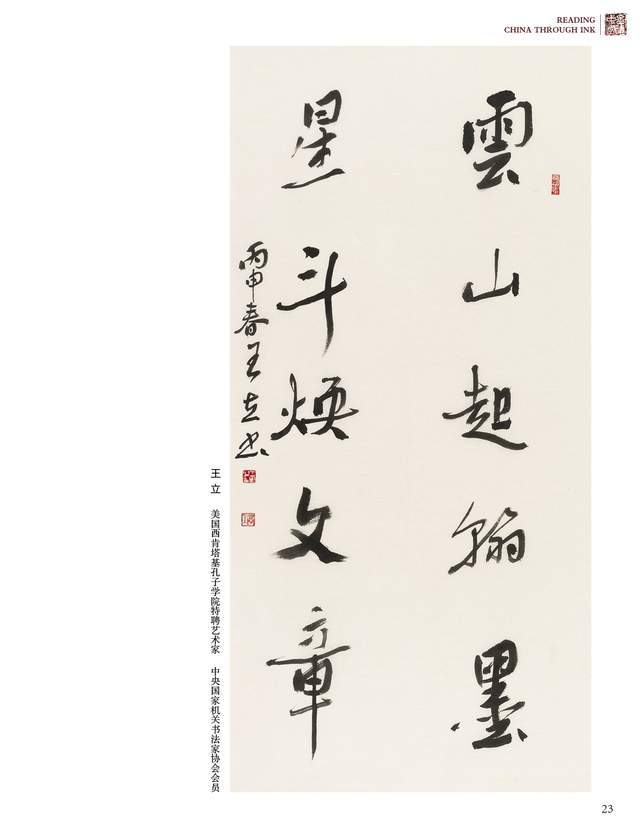 READING
CHINA THROUGH INK
雲山起翰墨
星斗煥文章
丙申春王立书
王立 美国西肯塔基孔子学院特聘艺术家 中央国家机关书法家协会会员
23